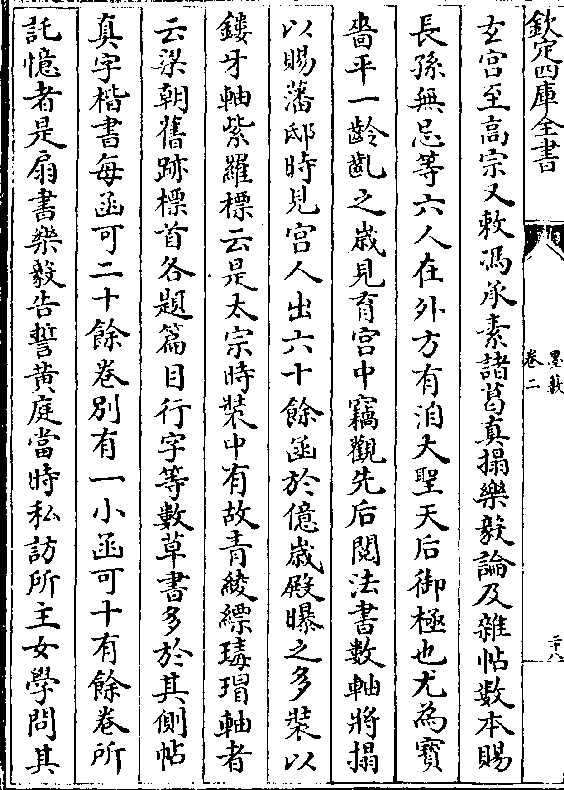 欽定四庫全書
墨藪
卷二
二十八
玄宫至高宗又敕馮承素諸葛真搨樂毅論及雜帖數本賜
長孫無忌等六人在外方有洎大聖天后御極也尤為寶
嗇平一齡齓之歲見育宫中竊觀先后閱法書數軸將搨
以賜藩邸時見宫人出六十餘函於億歲殿曝之多裝以
鏤牙軸紫羅標云是太宗時裝中有故青綾縹瑇瑁軸者
云梁朝舊跡標首各題篇目行字等數草書多於其側帖
真字楷書每函可二十餘卷别有一小函可十有餘卷所
記憶者是扇書樂毅告誓黄庭當時私訪所主女學問其